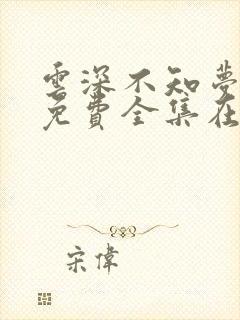 雲深不知夢
免費全集在
宋偉